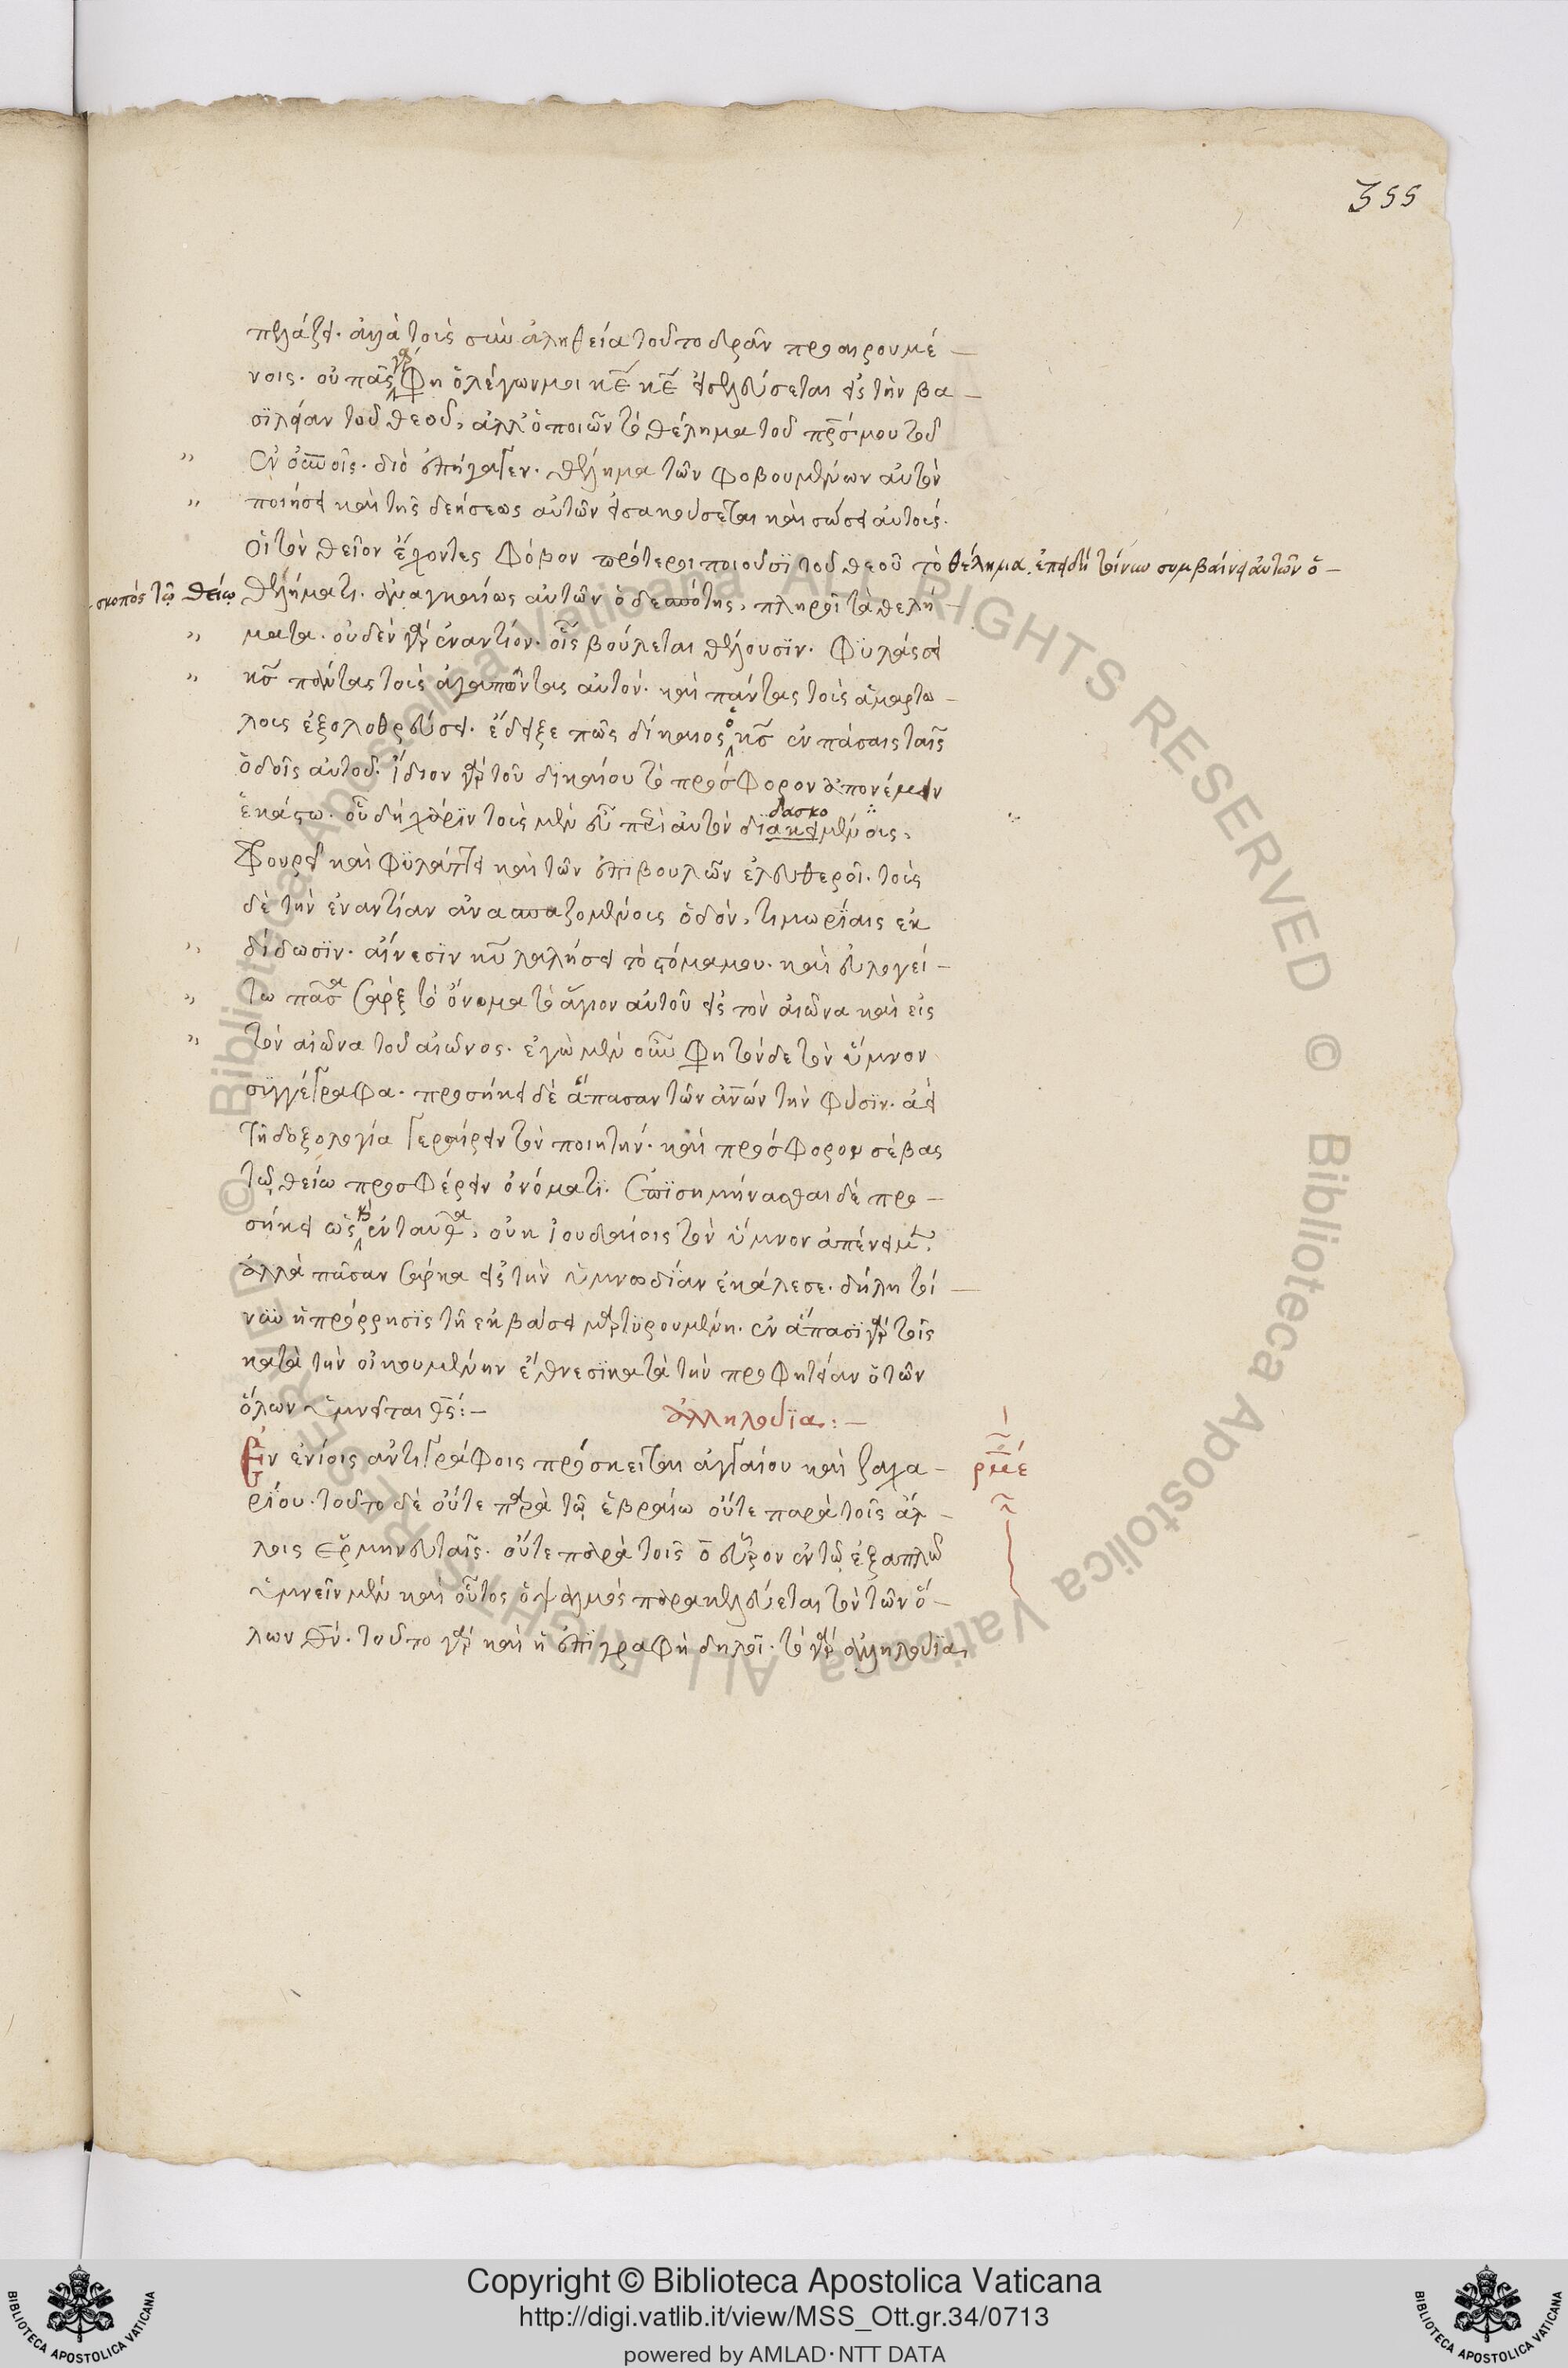 355
πελάζει. ἀλλὰ τοῖς σὺν ἀληθεία τοῦτο δρᾶν προαιρουμέ–
νοις. οὐ πᾶς γάρ φη ὁ λέγων μοι κε κε εἰσελεύσεται εἰς τὴν βα–
σϊλείαν τοῦ θεοῦ, ἀλλ' ὁ ποιῶν τὸ θέλημα τοῦ πρς μου τοῦ
ἐν οὐνοῖς. διὸ ἐπήγαγεν. θέλημα τῶν φοβουμένων αὐτὸν
ποιήσει καὶ τῆς δεήσεως αὐτῶν εἰσακούσεται καὶ σώσει αὐτούς.
οἱ τὸν θεῖον ἔχοντες φόβον πρότεροι ποιοῦσϊ τοῦ θεοῦ τὸ θέλημα. ἐπειδὴ τοίνυν συμβαίνει αὐτῶν ὁ–
σκοπὸς τῶ θείῳ θελήματι. ἀναγκαίως αὐτῶν ὁ δεσπότης, πληροῖ τὰ θελή–
ματα. οὐδὲν γὰρ ἐναντίον. οἷς βούλεται θέλουσϊν. φϋλάσσει
κς πάντας τοὺς ἀγαπῶντας αὐτόν. καὶ πάντας τοὺς ἁμαρτω–
λοὺς ἐξολοθρεύσει. ἔδειξε πῶς δίκαιος ὁ κς ἐν πάσαις ταῖς
ὁδοῖς αὐτοῦ. ἴδιον γὰρ τοῦ δικαίου τὸ πρόσφορον ἀπονέμειν
ἑκάστω. οὗ δὴ χάριν τοὺς μὲν εὖ περὶ αὐτὸν διακειμένους,
δασκο
φρουρεῖ καὶ φϋλάττει καὶ τῶν ἐπϊβουλῶν ἐλευθεροῖ. τοὺς
δὲ τὴν ἐναντίαν ἀσπαζομένους ὁδόν, τιμωρίαις ἐκ
δίδωσϊν. αἴνεσϊν κυ λαλήσει τὸ στόμα μου. καὶ εὐλογεί–
τω πᾶσα σὰρξ τὸ ὄνομα τὸ ἅγιον αὐτοῦ εἰς τὸν αἰῶνα καὶ εἰς
τὸν αἰῶνα τοῦ αἰῶνος. ἐγὼ μὲν οὖν φη τόνδε τὸν ὕμνον
συγγέγραφα. προσήκει δὲ ἅπασαν τῶν ἀνων τὴν φύσϊν. ἀεὶ
τῇ δοξολογία γεραίρειν τὸν ποιητήν. καὶ πρόσφορον σέβας
τῷ θείω προσφέρειν ὀνόματϊ. ἐπϊσημήνασθαι δὲ προ–
σήκει ὡς κἀνταῦθα, οὐκ ἰουδαίοις τὸν ὕμνον ἀπένειμε.
ἀλλὰ πᾶσαν σάρκα εἰς τὴν ὑμνωδίαν ἐκάλεσε. δήλη τοί–
νυν ἡ πρόρρησϊς τῇ ἐκβάσει μαρτϋρουμένη. ἐν ἅπασϊ γὰρ τοῖς
κατὰ τὴν οἰκουμένην ἔθνεσϊ κατὰ τὴν προφητείαν ὁ τῶν
ὅλων ὑμνεῖται θς:–
ἀλληλούϊα:–
Ἐν ἐνίοις ἀντιγράφοις πρόσκειται ἀγγαίου καὶ ζαχα–
ρμε
ρίου. τοῦτο δὲ οὔτε παρὰ τῶ ἑβραίω οὔτε παρὰ τοῖς ἄλ–
λοις ἑρμηνευταῖς. οὔτε παρὰ τοῖς ο εὗρον ἐν τῷ ἑξαπλῶ
ὑμνεῖν μὲν καὶ οὗτος ὁ ψαλμὸς παρακελεύεται τὸν τῶν ὅ–
λων θν. τοῦτο γὰρ καὶ ἡ ἐπϊγραφὴ δηλοῖ. τὸ γὰρ ἀλληλούϊα,
Copyright © Biblioteca Apostolica Vaticana
http://digi.vatlib.it/view/MSS_Ott.gr.34/0713
powered by AMLAD·NTT DATA
BIBLIOTECA APOSTOLICA VATICANA
BIBLIOTECA APOSTOLICA VATICANA
© Biblioteca Apostolica Vaticana ALL RIGHTS RESERVED
© Biblioteca Apostolica Vaticana ALL RIGHTS RESERVED